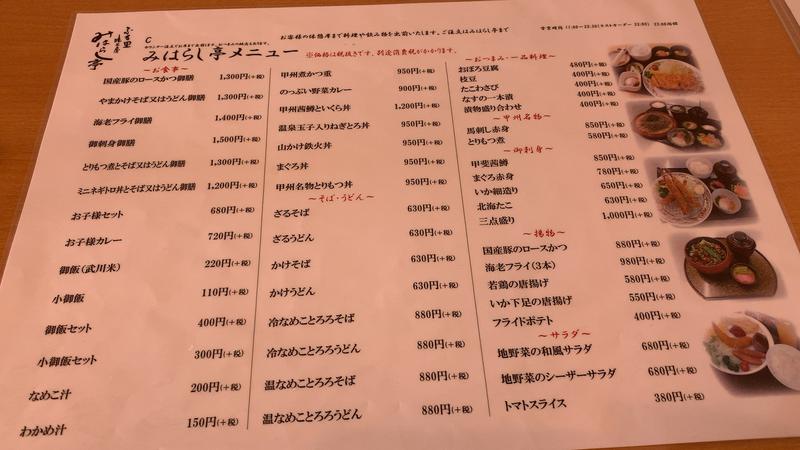 みはらし亭
C
お客様の休憩席まで料理や飲み物を出前いたします。ご注文はみはらし亭まで
みはらし亭メニュー
※価格は税抜きです。別途消費税がかかります。
～お食事～
国産豚のロースかつ御膳 1,300円(+税)
やまかけそば又はうどん御膳 1,300円(+税)
海老フライ御膳 1,400円(+税)
御刺身御膳 1,500円(+税)
とりもつ煮とそば又はうどん御膳 1,300円(+税)
ミニネギトロ丼とそば又はうどん御膳 1,200円(+税)
お子様セット 680円(+税)
お子様カレー 720円(+税)
御飯(武川米) 220円(+税)
小御飯 110円(+税)
御飯セット 400円(+税)
小御飯セット 300円(+税)
なめこ汁 200円(+税)
わかめ汁 150円(+税)
甲州煮かつ重 950円(+税)
のっぷい野菜カレー 900円(+税)
甲州茜鱒といくら丼 1,200円(+税)
温泉玉子入りねぎとろ丼 950円(+税)
山かけ鉄火丼 950円(+税)
まぐろ丼 950円(+税)
甲州名物とりもつ丼 950円(+税)
～そば・うどん～
ざるそば 630円(+税)
ざるうどん 630円(+税)
かけそば 630円(+税)
かけうどん 630円(+税)
冷なめことろろそば 880円(+税)
冷なめことろろうどん 880円(+税)
温なめことろろそば 880円(+税)
温なめことろろうどん 880円(+税)
～おつまみ・一品料理～
おぼろ豆腐 480円(+税)
枝豆 400円(+税)
たこわさび 400円(+税)
なすの一本漬 400円(+税)
漬物盛り合わせ 400円(+税)
～甲州名物～
馬刺し赤身 850円(+税)
とりもつ煮 580円(+税)
～御刺身～
甲斐茜鱒 850円(+税)
まぐろ赤身 780円(+税)
いか細造り 650円(+税)
北海たこ 630円(+税)
三点盛り 1,000円(+税)
～揚物～
国産豚のロースかつ 880円(+税)
海老フライ(3本) 980円(+税)
若鶏の唐揚げ 580円(+税)
いか下足の唐揚げ 550円(+税)
フライドポテト 400円(+税)
～サラダ～
地野菜の和風サラダ 680円(+税)
地野菜のシーザーサラダ 680円(+税)
トマトスライス 380円(+税)